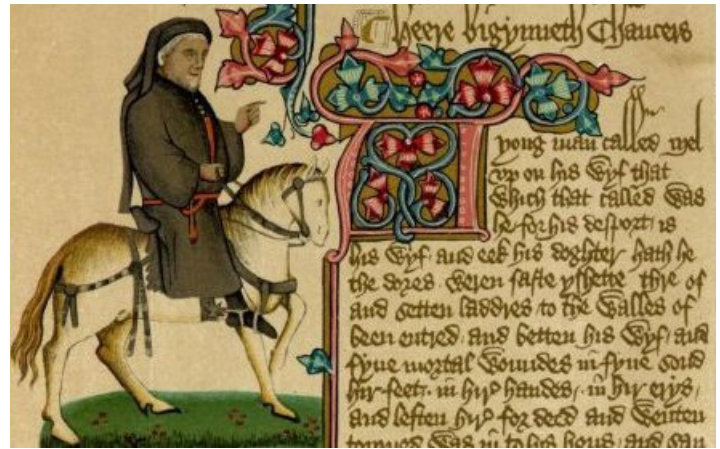 heere bigynneth Chaucers
A
yong man called mel
vp on his wyf that
which that called was
he for his desport is
his wyf and eek his doghter hath he
the dores weren faste yshette thre of
and setten laddres to the walles of
been entred and betten his wyf and
fyue mortal woundes in fyue sond
hir feet in hir handes in hir erys
and leften hir for deed and wenten
torned was in to his hous and sau